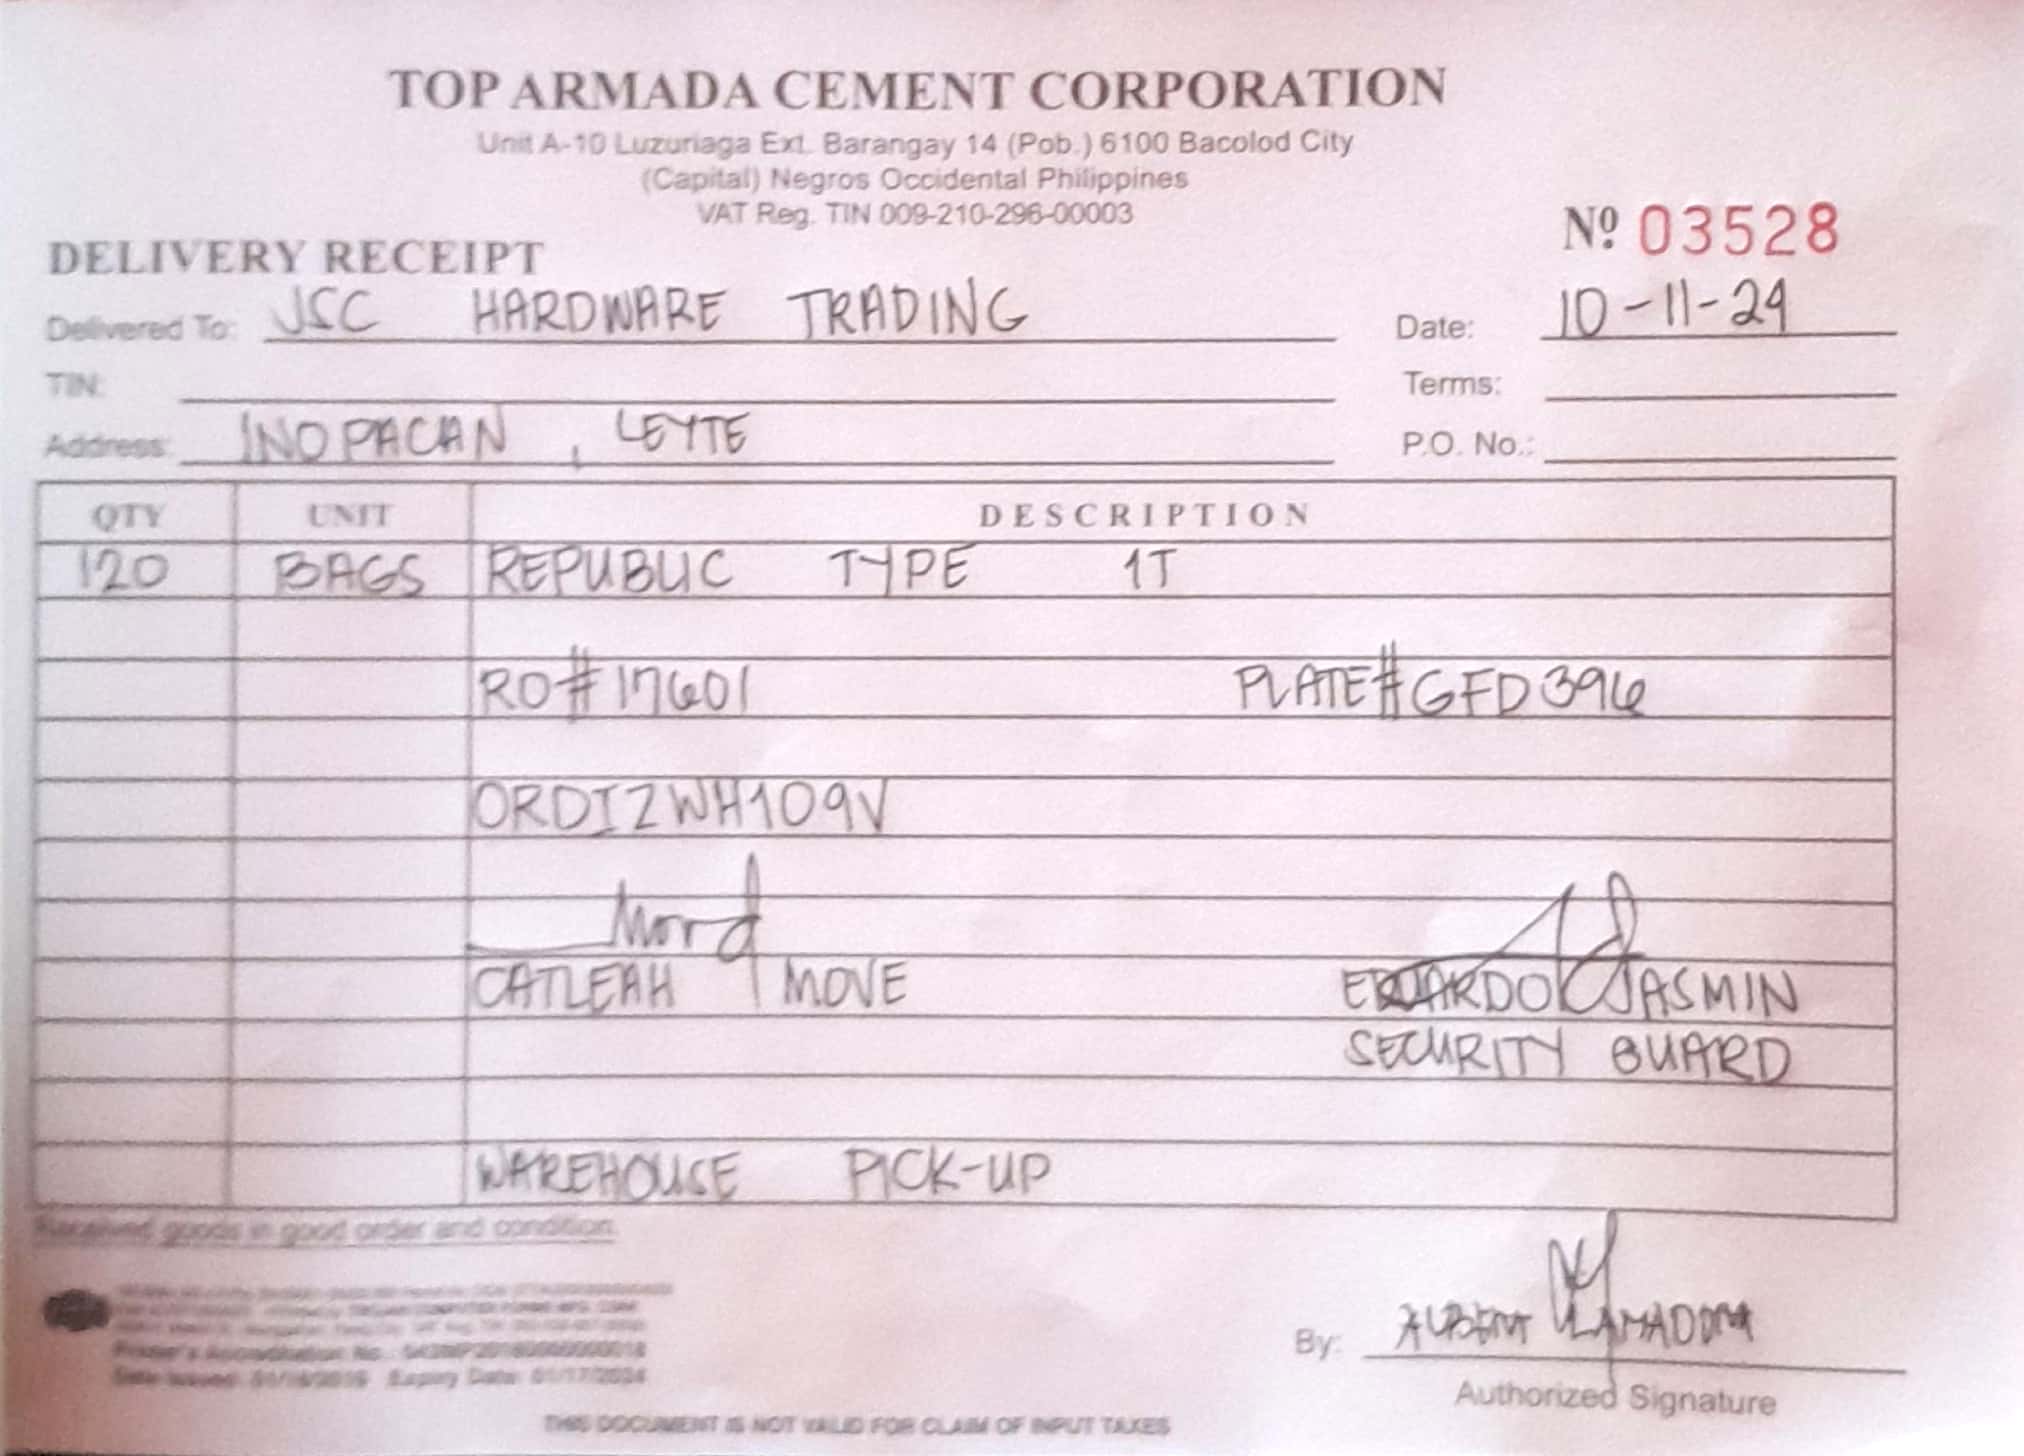 TOP ARMADA CEMENT CORPORATION
Unit A-10 Luzuriaga Ext. Barangay 14 (Pob.) 6100 Bacolod City
(Capital) Negros Occidental Philippines
VAT Reg. TIN 009-210-296-00003
Nº 03528
DELIVERY RECEIPT
Delivered To: JSC HARDWARE TRADING Date: 10-11-24
TIN: Terms:
Address: INOPACAN, LEYTE P.O. No.:
QTY UNIT DESCRIPTION
120 BAGS REPUBLIC TYPE 1T
RO#17601 PLATE#GFD396
ORDIZWH109V
CATLEAH MOVE EDUARDO JASMIN
SECURITY GUARD
WAREHOUSE PICK-UP
Received goods in good order and condition.
Printer's Accreditation No.:
Date Issued: Expiry Date: 01/17/2024
By: LAMADORA
Authorized Signature
THIS DOCUMENT IS NOT VALID FOR CLAIM OF INPUT TAXES